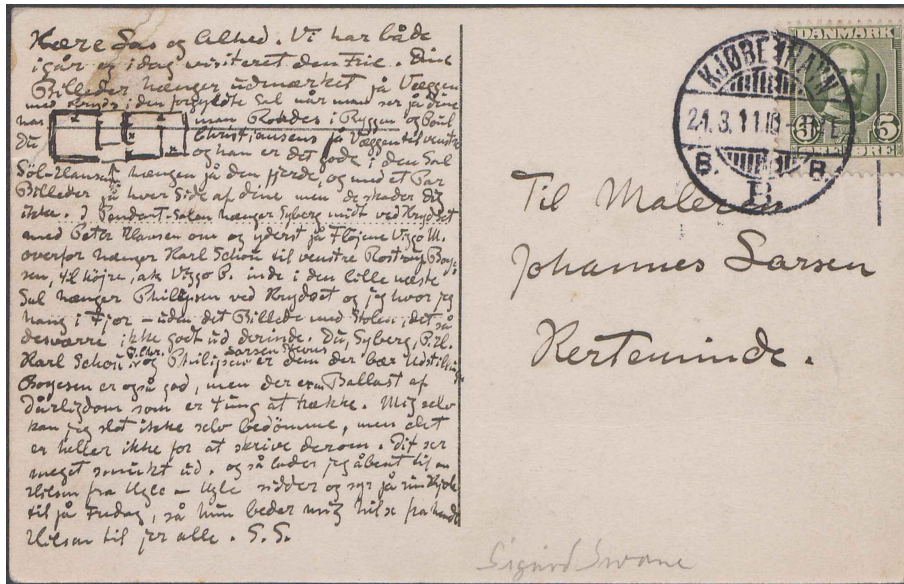 Kære Las og Alhed. Vi har både
igår og idag visiteret den Frie. Dine
Billeder hænger udmærket på Væggen
med Kryds i den forgyldte Sal når man ser på dine
har man Rohdes i Ryggen og Poul
Du Christiansens på Væggen til venstre
og han er det gode i den Sal
Søl-Hansen hænger på den fjerde, og med et Par
Billeder på hver Side af dine men de skader dig
ikke. I Pendant-Salen hænger Syberg midt ved Krydset
med Peter Hansen om og yderst på Fløjene Viggo M.
overfor hænger Karl Schou til venstre Rostrup Boye-
sen, til højre, ak Viggo P. inde i den lille næste
Sal hænger Philipsen ved Krydset og jeg hvor jeg
hang i Fjor – uden det Billede med Stolen, det så
desværre ikke godt ud derinde. Du, Syberg, P.H.
Karl Schou P. Chr. og Philipsen Larsen Stevns er dem der bær Udstillingen
Boyesen er også god, men der er en Ballast af
Dårligdom som er tung at trække. Mig selv
kan jeg slet ikke selv bedømme, men det
er heller ikke for at skrive derom. Dit ser
meget smukt ud. og så lader jeg åbent til en
Hilsen fra Ugle – Ugle sidder og syr på sin Kjole
til på Fredag, så hun beder mig hilse fra hende
Hilsen til jer alle. S.S.
DANMARK
5 5
ØRE
KJØBENHAVN
21.3.11.10-11
B. B.
B
Til Maleren
Johannes Larsen
Kerteminde.
Sigurd Swane